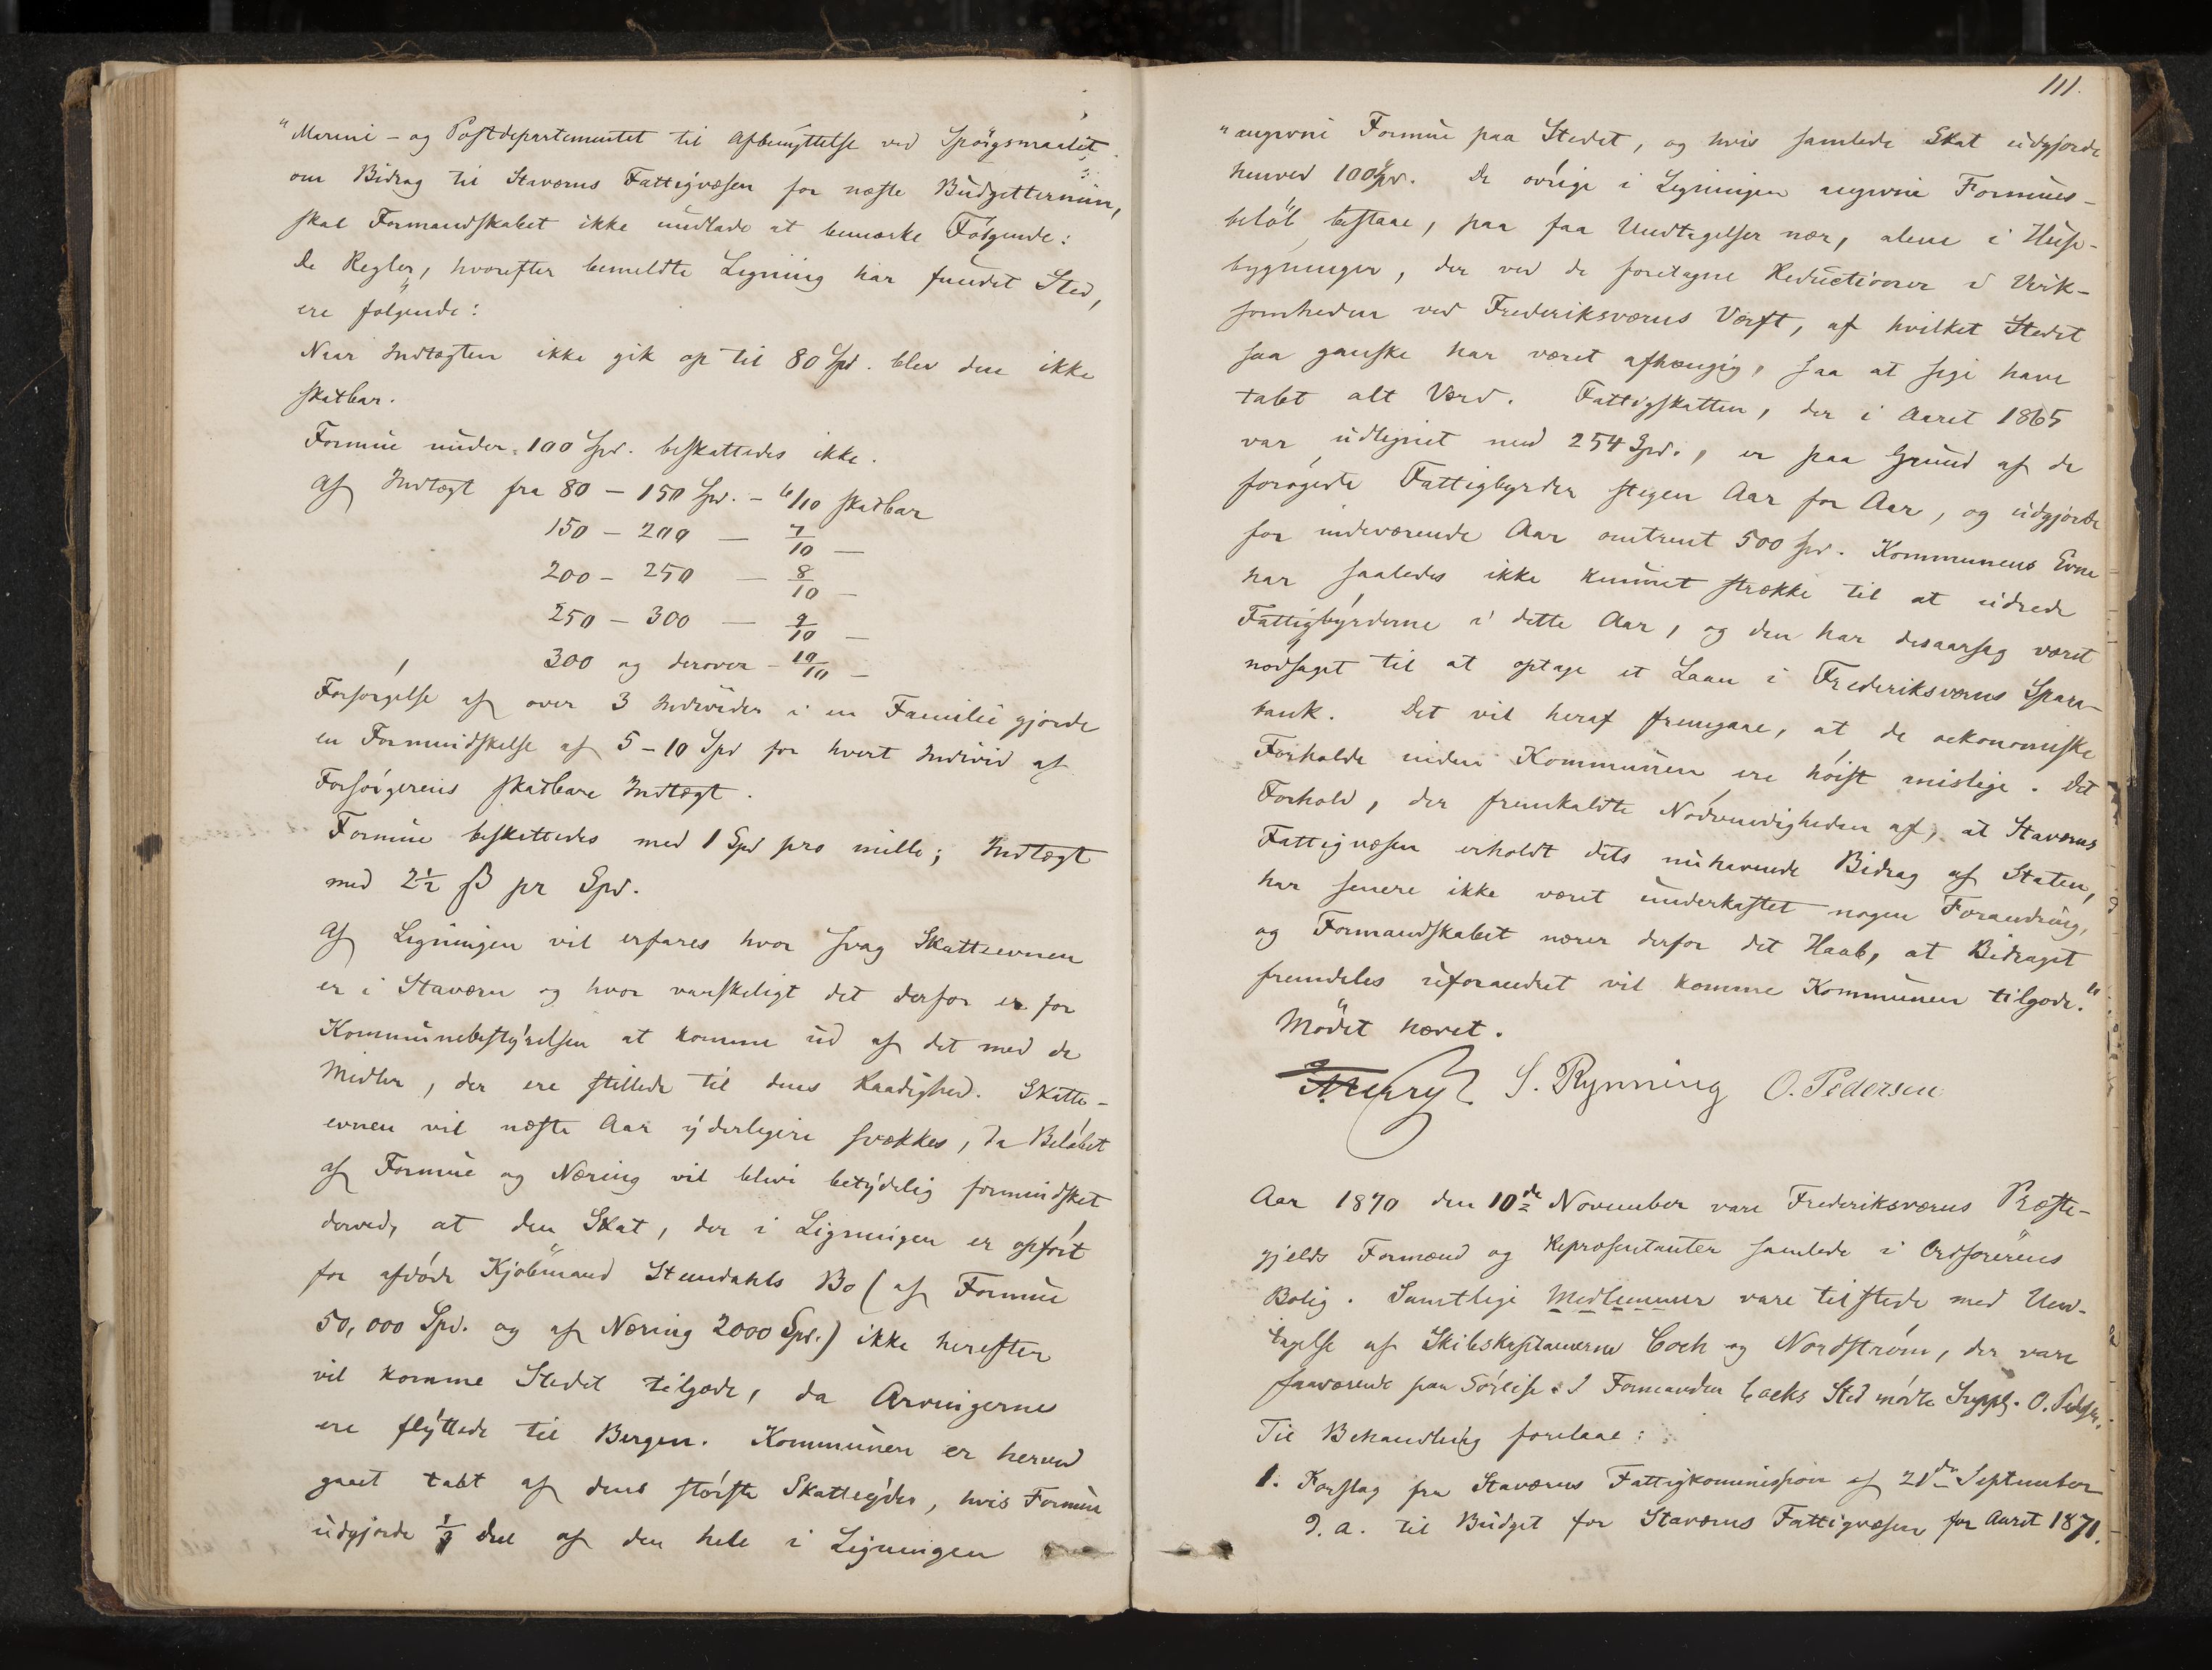 "Marine- og Postdepartementet til Afbenyttelse ved Spörgsmaalet
om Bidrag til Staværns Fattigvæsen for næste Budgettermin,
skal Formandskabet ikke undlade at bemærke Følgende:
De Regler, hvorefter bemeldte Ligning har fundet Sted,
ere følgende:
Naar Indtægten ikke gik op til 80 Spd. blev den ikke
skatbar.
Formue under 100 Spd. beskattedes ikke.
Af Indtægt fra 80 - 150 Spd. - 6/10 skatbar
150 - 200 — 7/10 —
200 - 250 — 8/10 —
250 - 300 — 9/10 —
300 og derover - 10/10 —
Forsørgelse af over 3 Individer i en Familie gjorde
en Formindskelse af 5-10 Spd for hvert Individ af
Forsørgerens skatbare Indtægt.
Formue beskattedes med 1 Spd pro mille; Indtægt
med 2½ ß pr Spd.
Af Ligningen vil erfares hvor svag Skatteevnen
er i Staværn og hvor vanskeligt det derfor er for
Kommunebestyrelsen at komme ud af det med de
Midler, der ere stillede til dens Raadighed. Skatte-
evnen vil næste Aar yderligere svækkes, da Beløbet
af Formue og Næring vil blive betydelig formindsket
derved, at den Skat, der i Ligningen er opført
for afdøde Kjøbmand Stendahls Bo (af Formue
50,000 Spd. og af Næring 2000 Spd.) ikke herefter
vil komme Stedet tilgode, da Arvingerne
ere flyttede til Bergen. Kommunen er herved
gaaet tabt af dens største Skatteyder, hvis Formue
udgjorde ⅓ Deel af den hele i Ligningen
111.
"angivne Formue paa Stedet, og hvis samlede Skat udgjorde
henved 100 Spd. De øvrige i Ligningen angivne Formues-
beløb bestaae, paa faa Undtagelser nær, alene i Huse-
bygninger, der ved de foretagne Reductioner i Virk-
somheden ved Frederiksværns Værft, af hvilket Stedet
saa ganske har været afhængig, saa at sige have
tabt alt Værd. Fattigskatten, der i Aaret 1865
var udlignet med 254 Spd., er paa Grund af de
forøgede Fattigbyrder stegen Aar for Aar, og udgjorde
for indeværende Aar omtrent 500 Spd. Kommunens Evne
har saaledes ikke kunnet strække til at udrede
Fattigbyrderne i dette Aar, og den har desaarsag været
nødsaget til at optage et Laan i Frederiksværns Spare-
bank. Det vil heraf fremgaae, at de oekonomiske
Forholde inden Kommunen ere høist mislige. Det
Forhold, der fremkaldte Nødvendigheden af, at Staværns
Fattigvæsen erholdt dets nuhavende Bidrag af Staten,
har senere ikke været underkastet nogen Forandring,
og Formandskabet nærer derfor det Haab, at Bidraget
fremdeles uforandret vil komme Kommunen tilgode."
Mødet hævet.
S. Rynning O. Pedersen
Aar 1870 den 10de November vare Frederiksværns Præste-
gjelds Formænd og Repræsentanter samlede i Ordførerens
Bolig. Samtlige Medlemmer vare tilstede med Und-
tagelse af Skibskaptainerne Coch og Nordstrøm, der vare
fraværende paa Søreise. I Formanden Cochs Sted mødte Suppl. O. Peders.
Til Behandling forelaae:
1. Forslag fra Staværns Fattigkommission af 21de September
d. a. til Budget for Staværns Fattigvæsen for Aaret 1871.